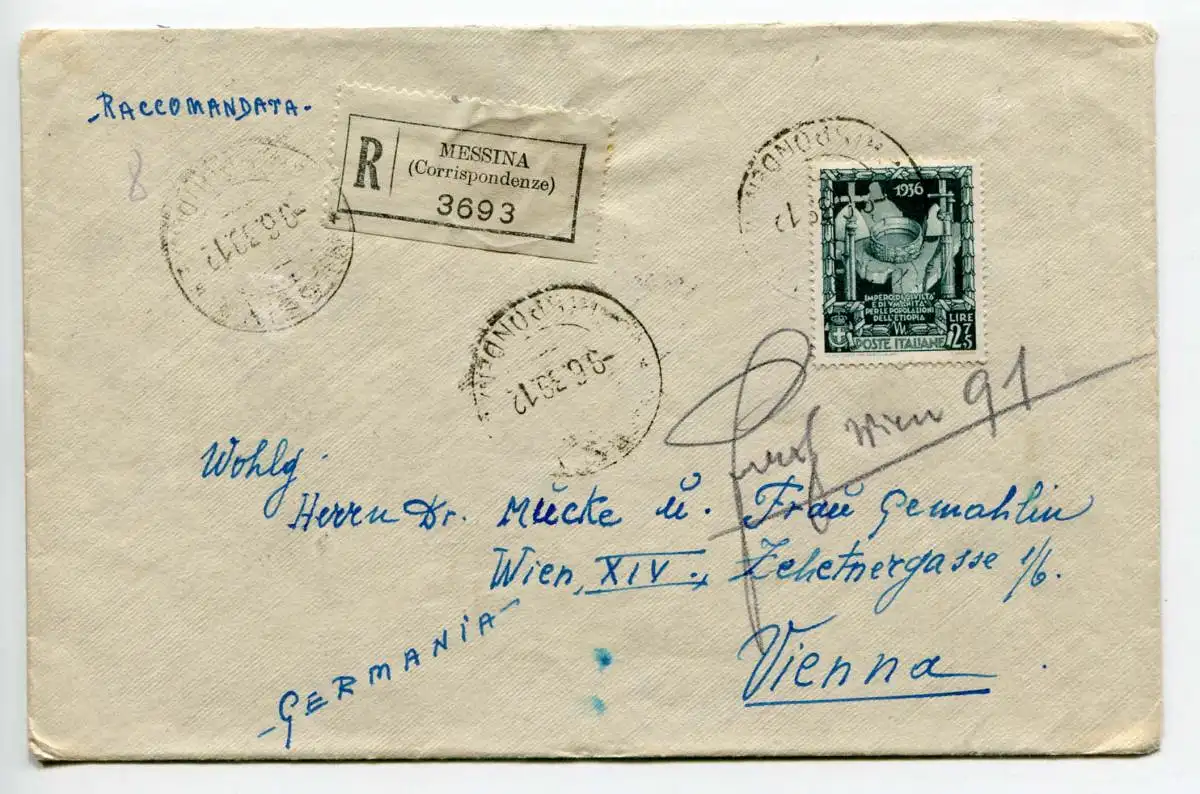 -RACCOMANDATA-
8
R
MESSINA
(Corrispondenze)
3693
-9.6.39.12
-9.6.39.12
1936
IMPERO DI CIVILTÀ
E DI VMANITÀ
PER LE POPOLAZIONI
DELL'ETIOPIA
M
LIRE
2,75
POSTE ITALIANE
Wien 91
Wohlg.
Herrn Dr. Mücke u. Frau Gemahlin
Wien, XIV., Zehetnergasse 1/6.
-GERMANIA-
Vienna